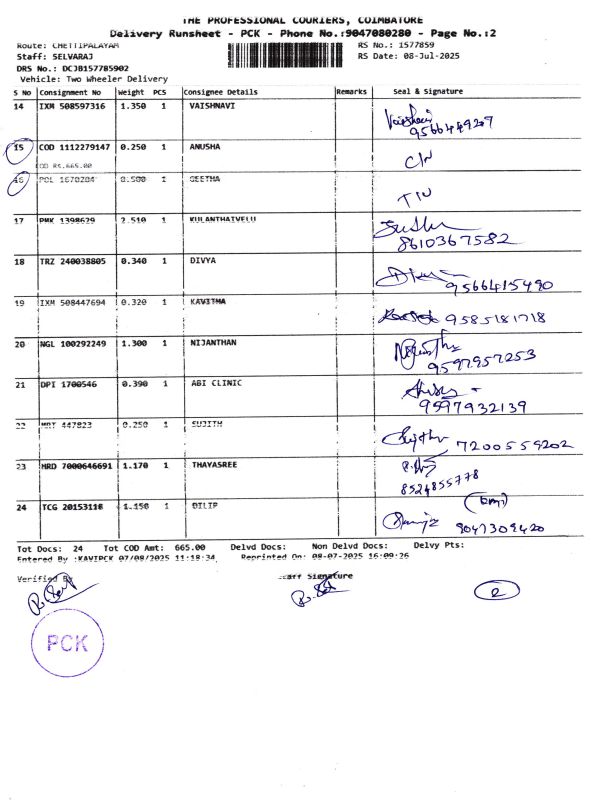 THE PROFESSIONAL COURIERS, COIMBATORE
Delivery Runsheet - PCK - Phone No.:9047080280 - Page No.:2
Route: CHETTIPALAYAM RS No.: 1577859
Staff: SELVARAJ RS Date: 08-Jul-2025
DRS No.: DCJB157785902
Vehicle: Two Wheeler Delivery
S No Consignment No Weight PCS Consignee Details Remarks Seal & Signature
14 IXM 508597316 1.350 1 VAISHNAVI
9566449207
15 COD 1112279147 0.250 1 ANUSHA C/N
COD RS.665.00
16 POL 1670284 0.500 1 GEETHA
17 PMK 1398629 2.510 1 KULANTHAIVELU
8610367582
18 TRZ 240038805 0.340 1 DIVYA
9566415490
19 IXM 508447694 0.320 1 KAVITHA 9585181718
20 NGL 100292249 1.300 1 NIJANTHAN
9597957253
21 DPI 1700546 0.390 1 ABI CLINIC
9597932139
22 MRT 447823 0.250 1 SUJITH
7200559202
23 MRD 7000646691 1.170 1 THAYASREE
8524855778
24 TCG 20153118 1.150 1 DILIP
9047309420
Tot Docs: 24 Tot COD Amt: 665.00 Delvd Docs: Non Delvd Docs: Delvy Pts:
Entered By :KAVIPCK 07/08/2025 11:18:34 Reprinted On: 08-07-2025 16:09:26
Verified By Staff Signature
2
PCK